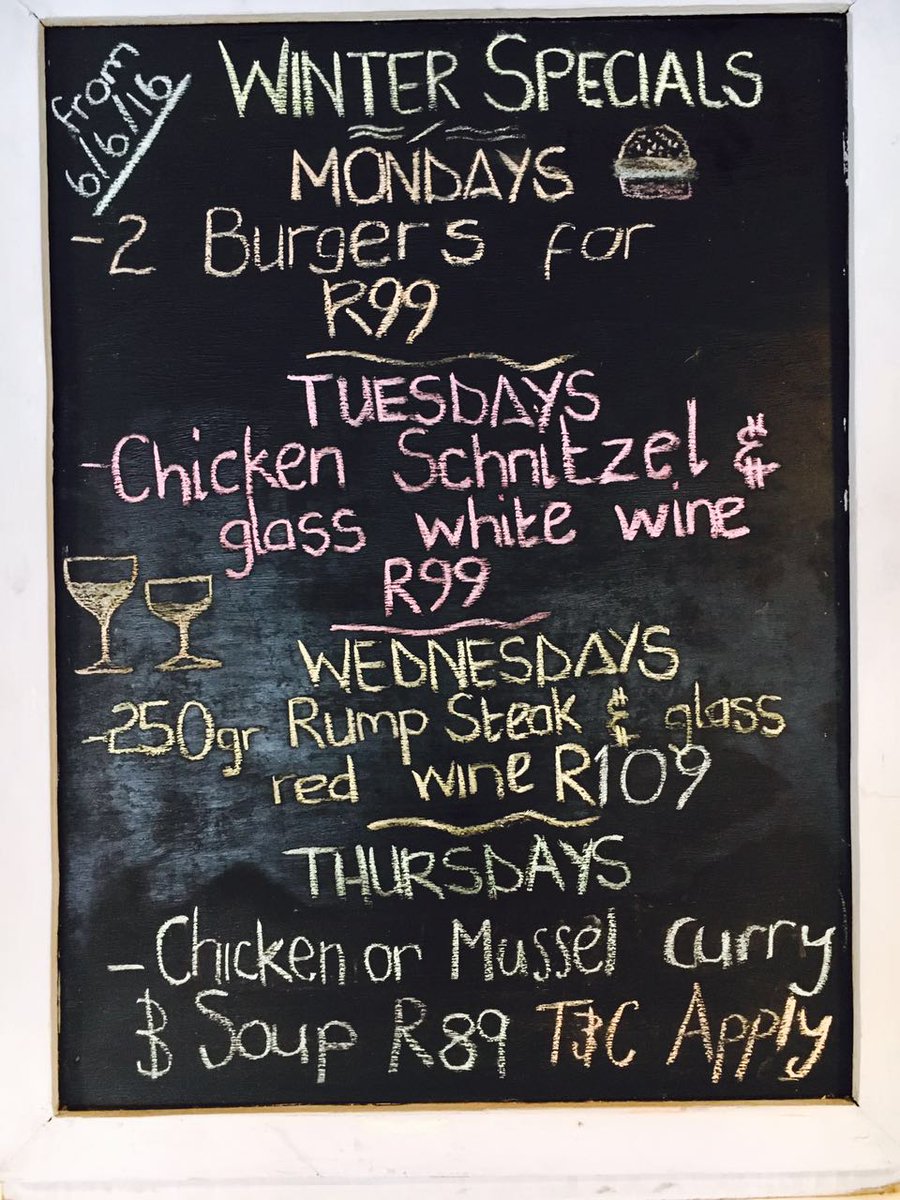 from
6/6/16
WINTER SPECIALS
MONDAYS
-2 Burgers for
R99
TUESDAYS
-Chicken Schnitzel &
glass white wine
R99
WEDNESDAYS
-250gr Rump Steak & glass
red wine R109
THURSDAYS
-Chicken or Mussel curry
& Soup R89 T&C Apply